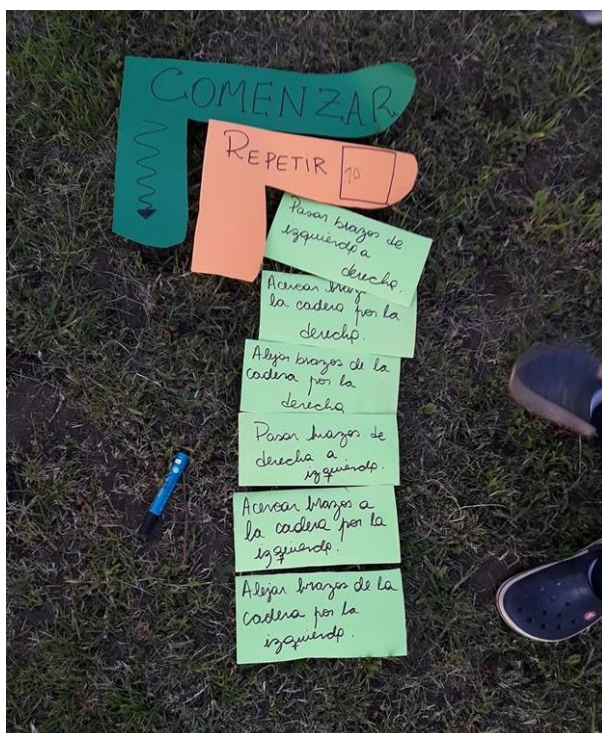 COMENZAR
REPETIR 10
Pasar brazos de
izquierda a
derecha.
Acercar brazos
la cadera por la
derecha.
Alejar brazos de la
cadera por la
derecha
Pasar brazos de
derecha a
izquierda.
Acercar brazos a
la cadera por la
izquierda.
Alejar brazos de la
cadera por la
izquierda.